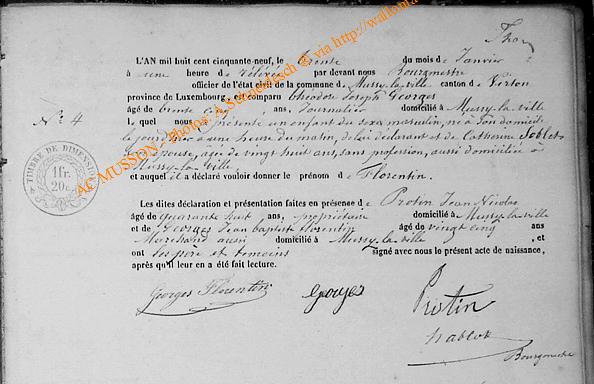 L'AN mil huit cent cinquante-neuf, le trente du mois de Janvier
à une heure de relevée par devant nous Bourgmestre
officier de l'état civil de la commune de Mussy-la-ville canton de Virton
province de Luxembourg, est comparu théodore Joseph Georges
âgé de trente ans, Journalier domicilié à Mussy-la-ville
Nº 4
lequel nous a présenté un enfant du sexe masculin, né à son domicile
le jour à une heure du matin, de lui déclarant et de Catherine
épouse, agée de vingt huit ans, sans profession, aussi domiciliée à
Mussy-la-Ville
et auquel il a déclaré vouloir donner le prénom de Florentin.
TIMBRE DE DIMENSION
1 fr.
20c.
Les dites déclaration et présentation faites en présence de Protin Jean Nicolas
âgé de quarante huit ans, propriétaire domicilié à Mussy-la-ville
et de Georges Jean baptiste florentin âgé de vingt cinq ans
Marchand aussi domicilié à Mussy-la-ville, et
ont les père et temoins signé avec nous le présent acte de naissance,
après qu'il leur en a été fait lecture.
Georges Florentin
Georges
Protin
Bourgmestre
AC MUSSON - Photos: A. via http://wallonia